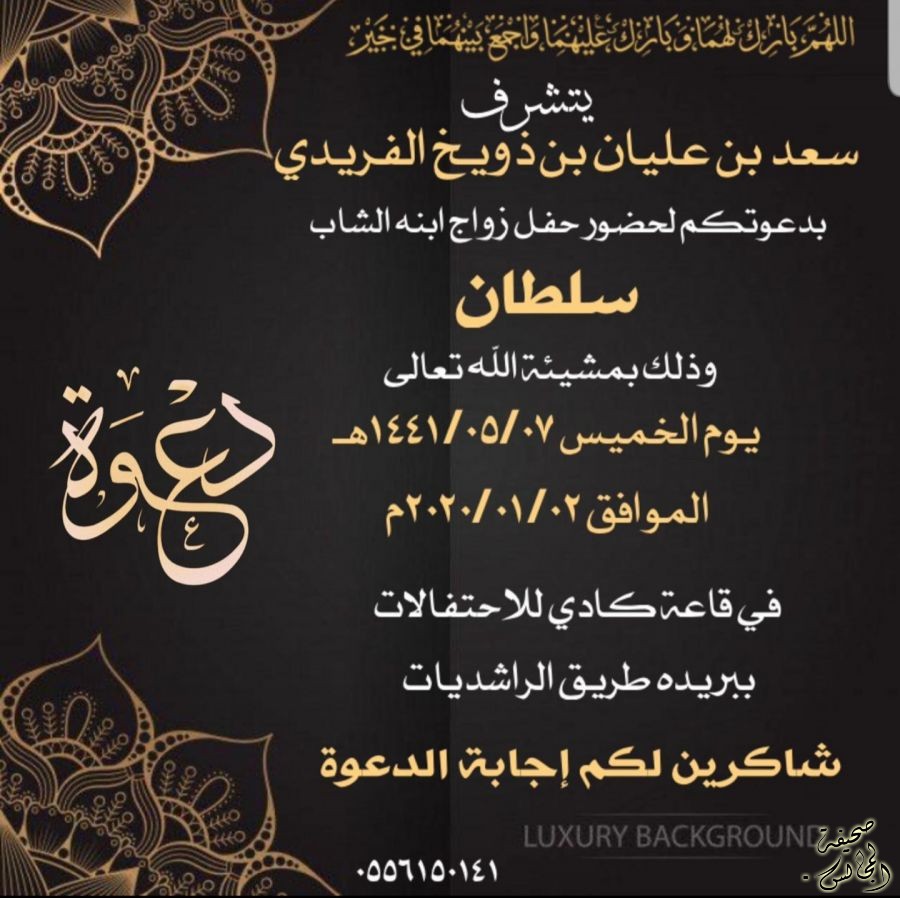 اللهم بارك لهما وبارك عليهما واجمع بينهما في خير
يتشرف
سعد بن عليان بن ذويخ الفريدي
بدعوتكم لحضور حفل زواج ابنه الشاب
سلطان
وذلك بمشيئة الله تعالى
يوم الخميس ١٤٤١/٠٥/٠٧هـ
الموافق ٢٠٢٠/٠١/٠٢م
دعوة
في قاعة كادي للاحتفالات
ببريده طريق الراشديات
شاكرين لكم إجابة الدعوة
LUXURY BACKGROUND
صحيفة
المجالس
٠٥٥٦١٥٠١٤١